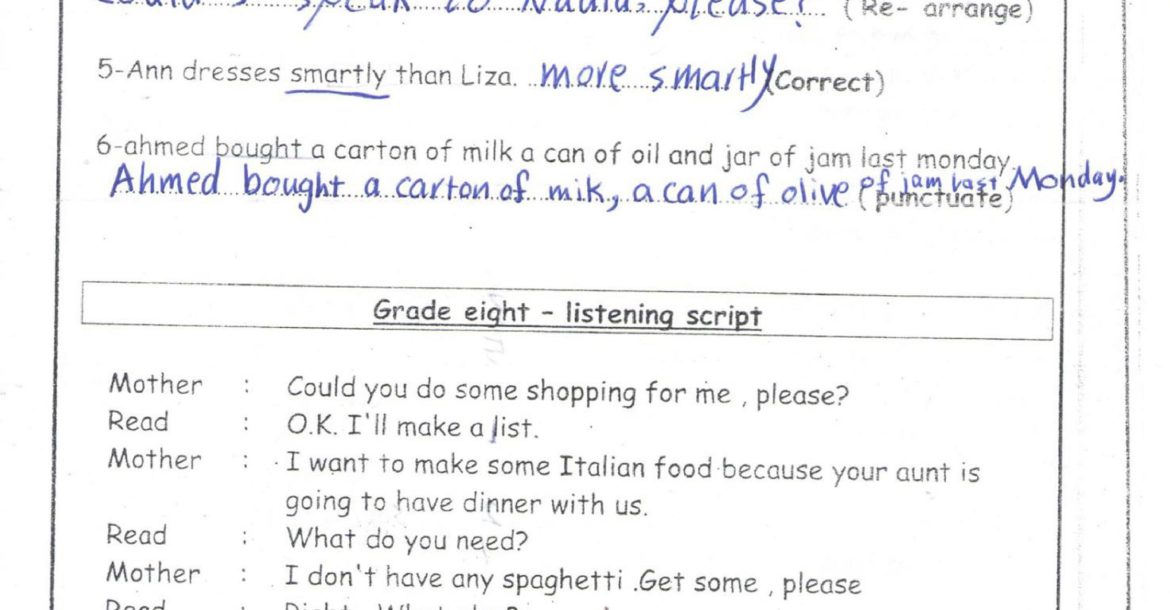 speak to Nadia, please? (Re- arrange)
5-Ann dresses smartly than Liza. more smartly (Correct)
6-ahmed bought a carton of milk a can of oil and jar of jam last monday
Ahmed bought a carton of mik, a can of olive of jam last Monday. (punctuate)
Grade eight - listening script
Mother : Could you do some shopping for me , please?
Read : O.K. I'll make a list.
Mother : I want to make some Italian food because your aunt is
going to have dinner with us.
Read : What do you need?
Mother : I don't have any spaghetti .Get some , please